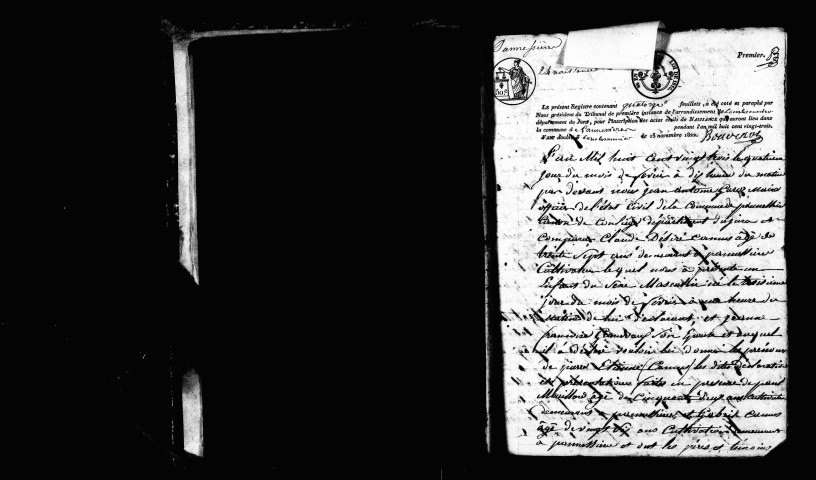 Pannessière
Premier.
24 naissances
LE présent Registre contenant quatorze feuillets, a été coté et paraphé par
Nous président du Tribunal de première instance de l'arrondissement de
département du Jura, pour l'inscription des actes civils de NAISSANCE qui auront lieu dans
la commune d pendant l'an mil huit cent vingt-trois.
Fait double à le 15 novembre 1822.
L'an Mil huit cent vingt trois le quatrieme
jour du mois de fevrier à dix heures du matin
par devant nous jean antoine Maire
officier de l'état Civil de la Commune de pannessière
canton de Conliège département du jura est
comparu Claude Désiré Camus âgé de
trente Sept ans demeurant à pannessière
Cultivateur lequel nous a présenté un
Enfant du Sexe Masculin né le troisième
jour du mois de fevrier à une heure du
Matin de lui déclarant et jeanne
françoise Son Epouse et auquel
il a déclaré vouloir lui donner les prénoms
de pierre Etienne Camus les dites déclaration
et présentations faites en présence de
Maillard âgé de Cinquante deux ans Cultivateur
demeurant à pannessière et Gabriel Camus
âgé de vingt six ans Cultivateur demeurant
à pannessière et ont les père et témoins